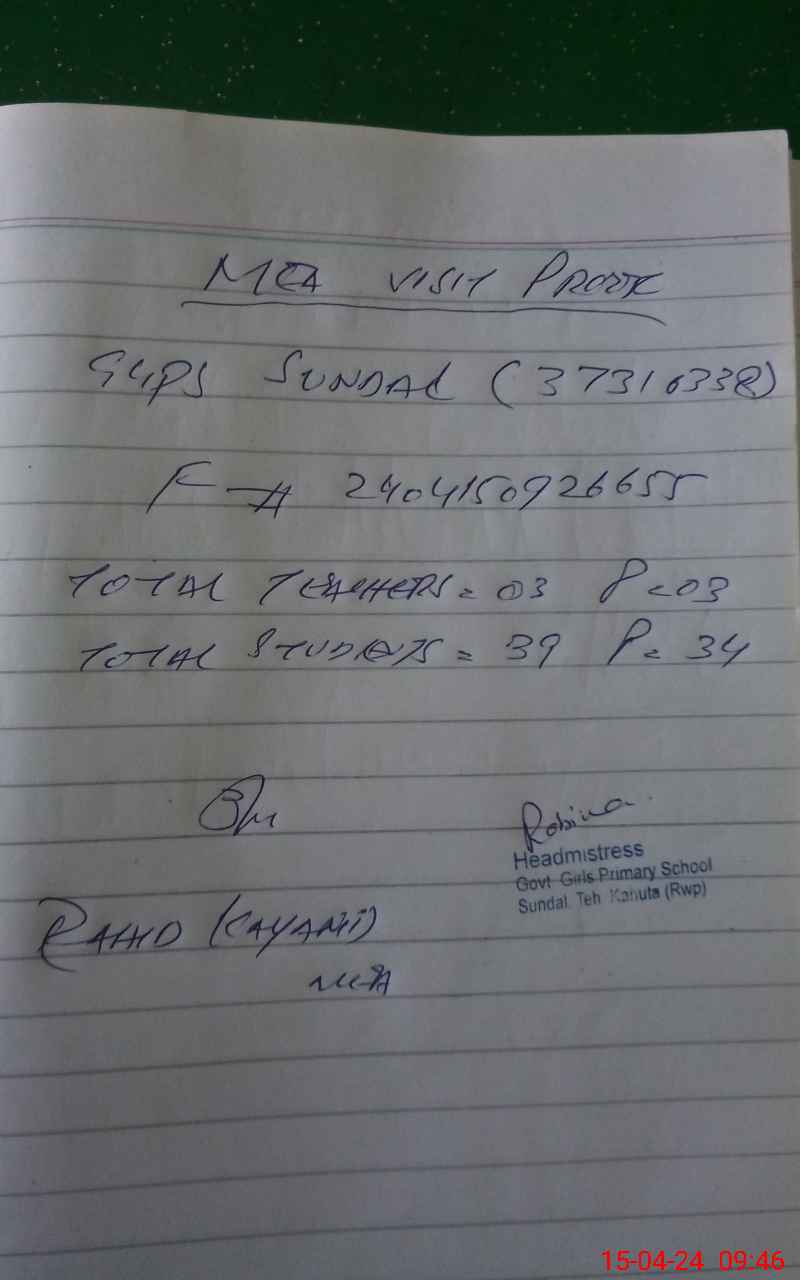 MEA VISIT PROOF
GGPS SUNDAL (37310338)
F-A 2404150926655
TOTAL TEACHERS = 03 P = 03
TOTAL STUDENTS = 39 P = 34
Robina
Headmistress
Govt Girls Primary School
Sundal Teh Kahuta (Rwp)
KAYANI
MEA
15-04-24 09:46